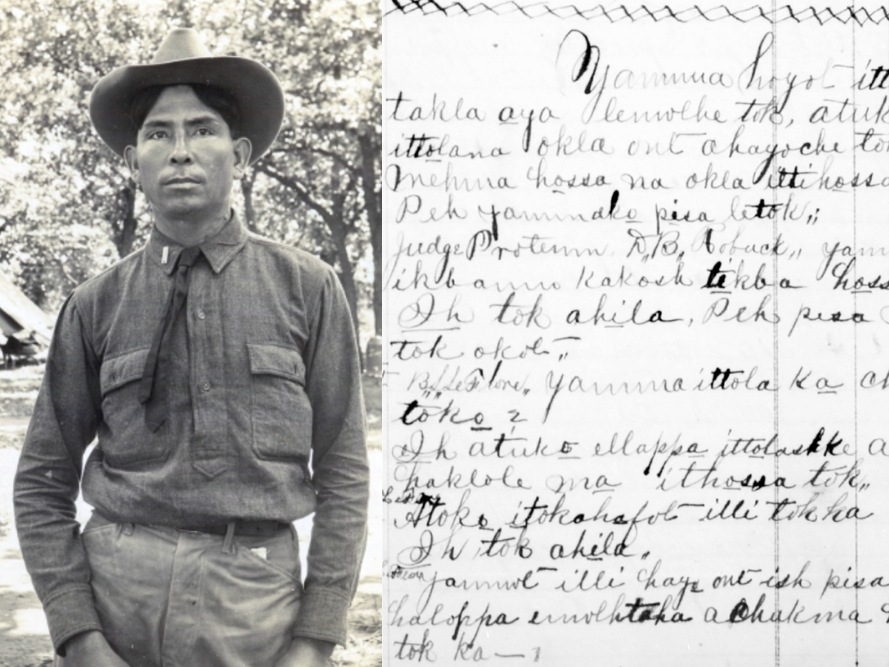 Yammua hoyot itt
takla aya lenwlhe tok, atuk
ittolana okla ont ahayoche tok
Mehma hossa na okla ittihossa
Peh yammako pisa letok,,
Judge Protemn D,,B,, Roback,, yam
ikbanno kakosh tekba hoss
Ih tok ahila, Peh pisa
tok okot,,
B,,LeFlore,, yamma ittola ka ch
toko ?
Ih atuko ellappa ittolashke a
haklole ma ithossa tok,,
Atoko itokahofot illi tok ka
Ih tok ahila,
yammot illi haye ont ish pisa
haloppa enwlhtaha achukma
tok ka — ?